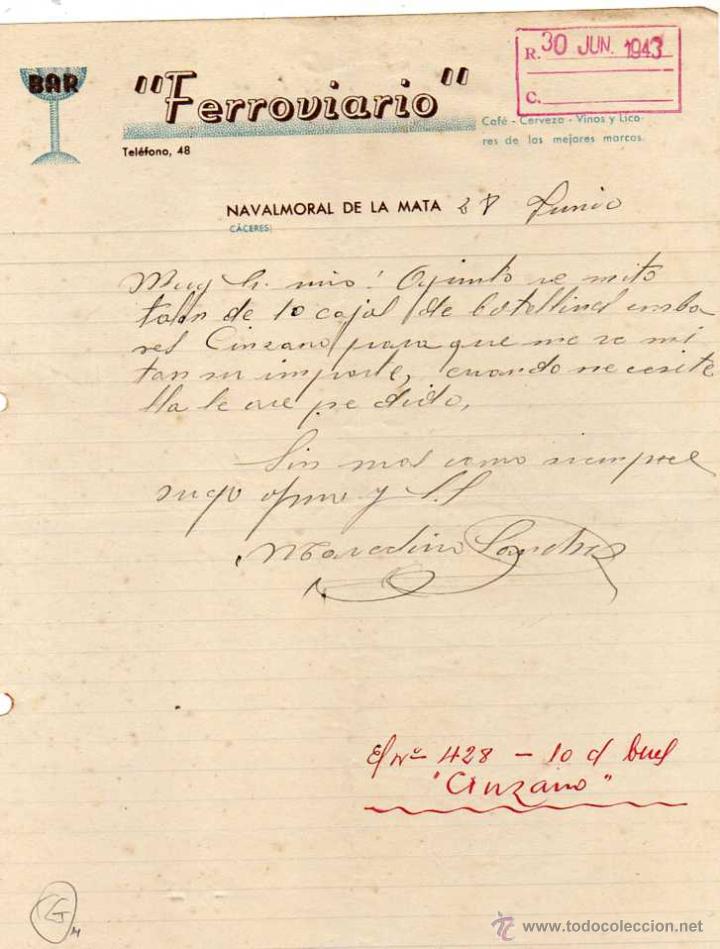 BAR
"Ferroviario"
Teléfono, 48
R. 30 JUN. 1943
C.
Café - Cerveza - Vinos y Lico-
res de las mejores marcas.
NAVALMORAL DE LA MATA 28 Junio
(CÁCERES)
Muy S. mio: Ajunto re mito
talon de 10 cajas de botellines
Cinzano para que me re mi
tan su importe, cuando necesite
pe dido,
Sin mas como siempre
suyo affmo y S.S
Marcelino Sanchez
El nº 428 - 10 c/
"Cinzano"
www.todocoleccion.net